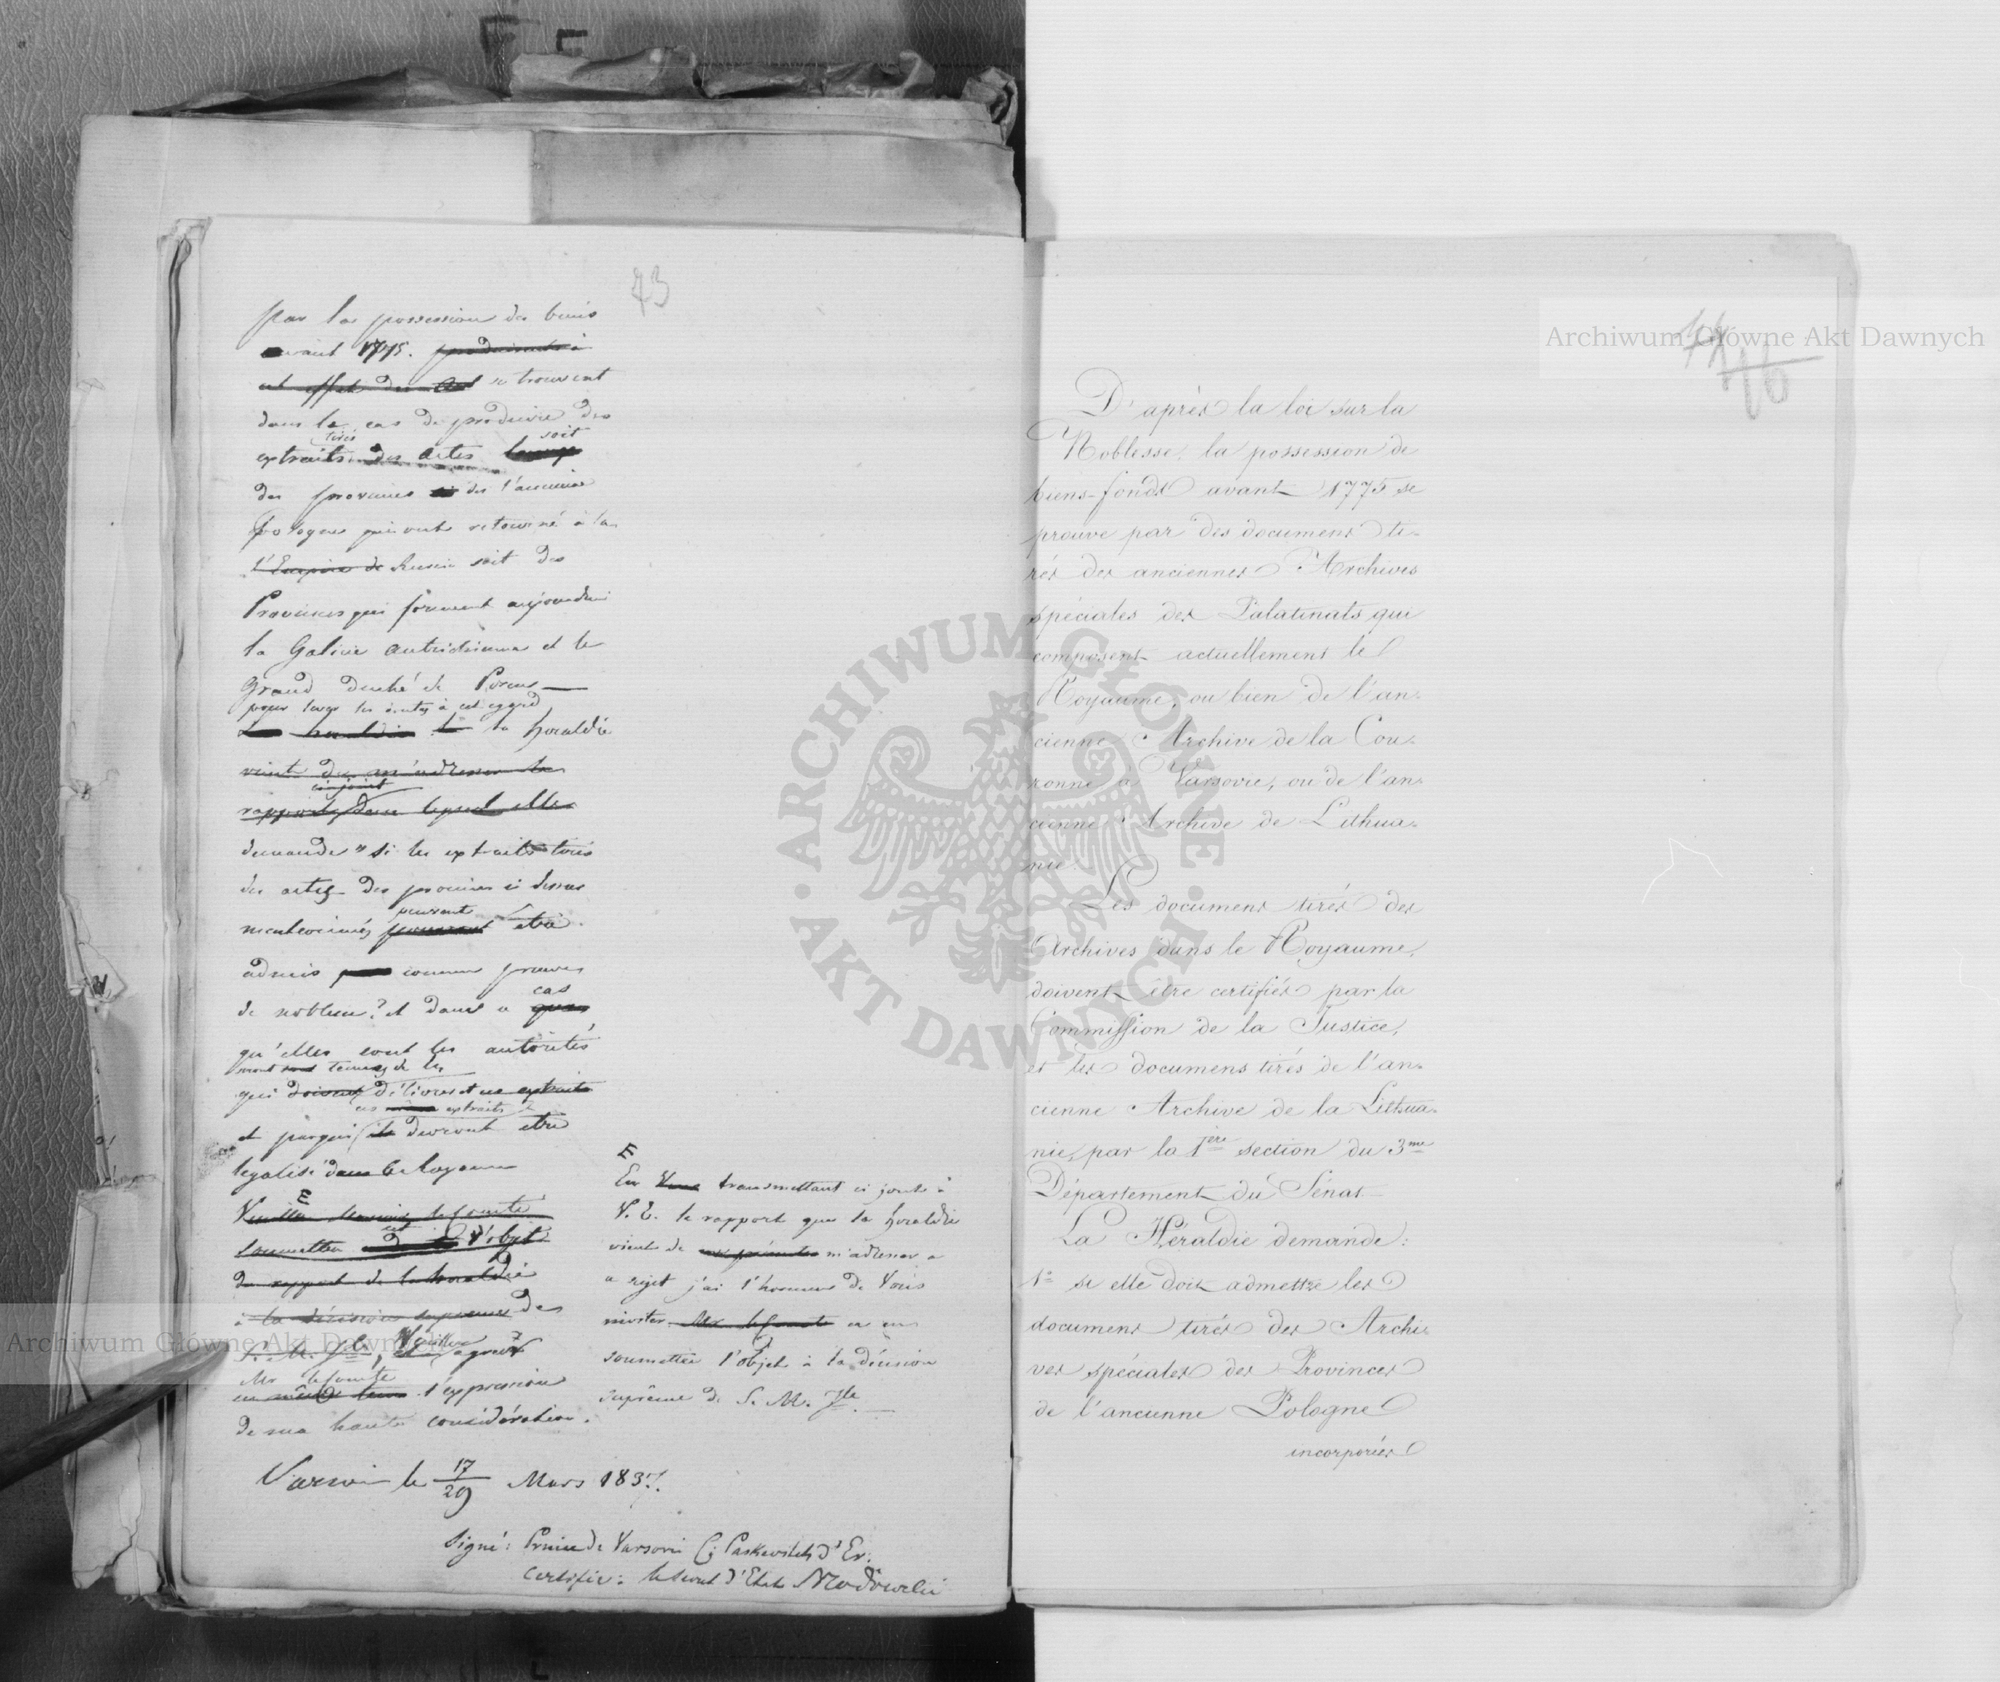 73
par la possession de biens
avant 1775. produisent à
cet effet des se trouvent
dans le cas de produire des
extraits tirés des actes soit
des provinces de l'ancienne
Pologne qui ont retourné à la
l'Empire de Russie soit des
Provinces qui forment aujourdhui
la Galicie autrichienne et le
Grand duché de Posen —
pour lever les doutes à cet égard
la heraldie la heraldie
vient de m'adresser le
rapport ci-joint dans lequel elle
demande " si les extraits tirés
des actes des provinces ci dessus
mentionnés peuvent être
admis comme preuves
de noblesse? et dans ce cas
qu'elles sont les autorités
qui doivent délivrer et ces extraits
ces extraits
et par qui ils devront être
legalisé dans le Royaume
E
Veuillez Monsieur le Comte
soumettre cet l'objet
du rapport de la heraldie
à la décision supreme de
S. M. Jle, Veuillez agréer
Mr le Comte
en même tems l'expression
de ma haute considération.
E
En transmettant ci joint à
V. E. le rapport que la heraldie
vient de m'adresser a
ce sujet j'ai l'honneur de Vous
inviter Mr le Comte
soumettre l'objet à la décision
suprême de S. M. Jle. —
Varsovie le 17/29 Mars 1837.
Signé: Prince de Varsovie C: Paskevitch d'Er:
Certifié: le Secret d'Etat
76
D'après la loi sur la
Noblesse, la possession de
biens-fonds avant 1775 se
prouve par des documens ti-
rés des anciennes Archives
spéciales des Palatinats qui
composent actuellement le
Royaume, ou bien de l'an-
cienne Archive de la Cou-
ronne a Varsovie, ou de l'an-
cienne Archive de Lithua-
nie.
Les documens tirés des
Archives dans le Royaume,
doivent être certifiés par la
Commission de la Justice,
et les documens tirés de l'an-
cienne Archive de la Lithua-
nie, par la 1ère section du 3me
Département du Sénat
La Héraldie demande:
1º se elle doit admettre les
documens tirés des Archi-
ves spéciales des Provinces
de l'ancienne Pologne
incorporées
Archiwum Główne Akt Dawnych
Archiwum Główne Akt Dawnych
ARCHIWUM GŁÓWNE · AKT DAWNYCH ·